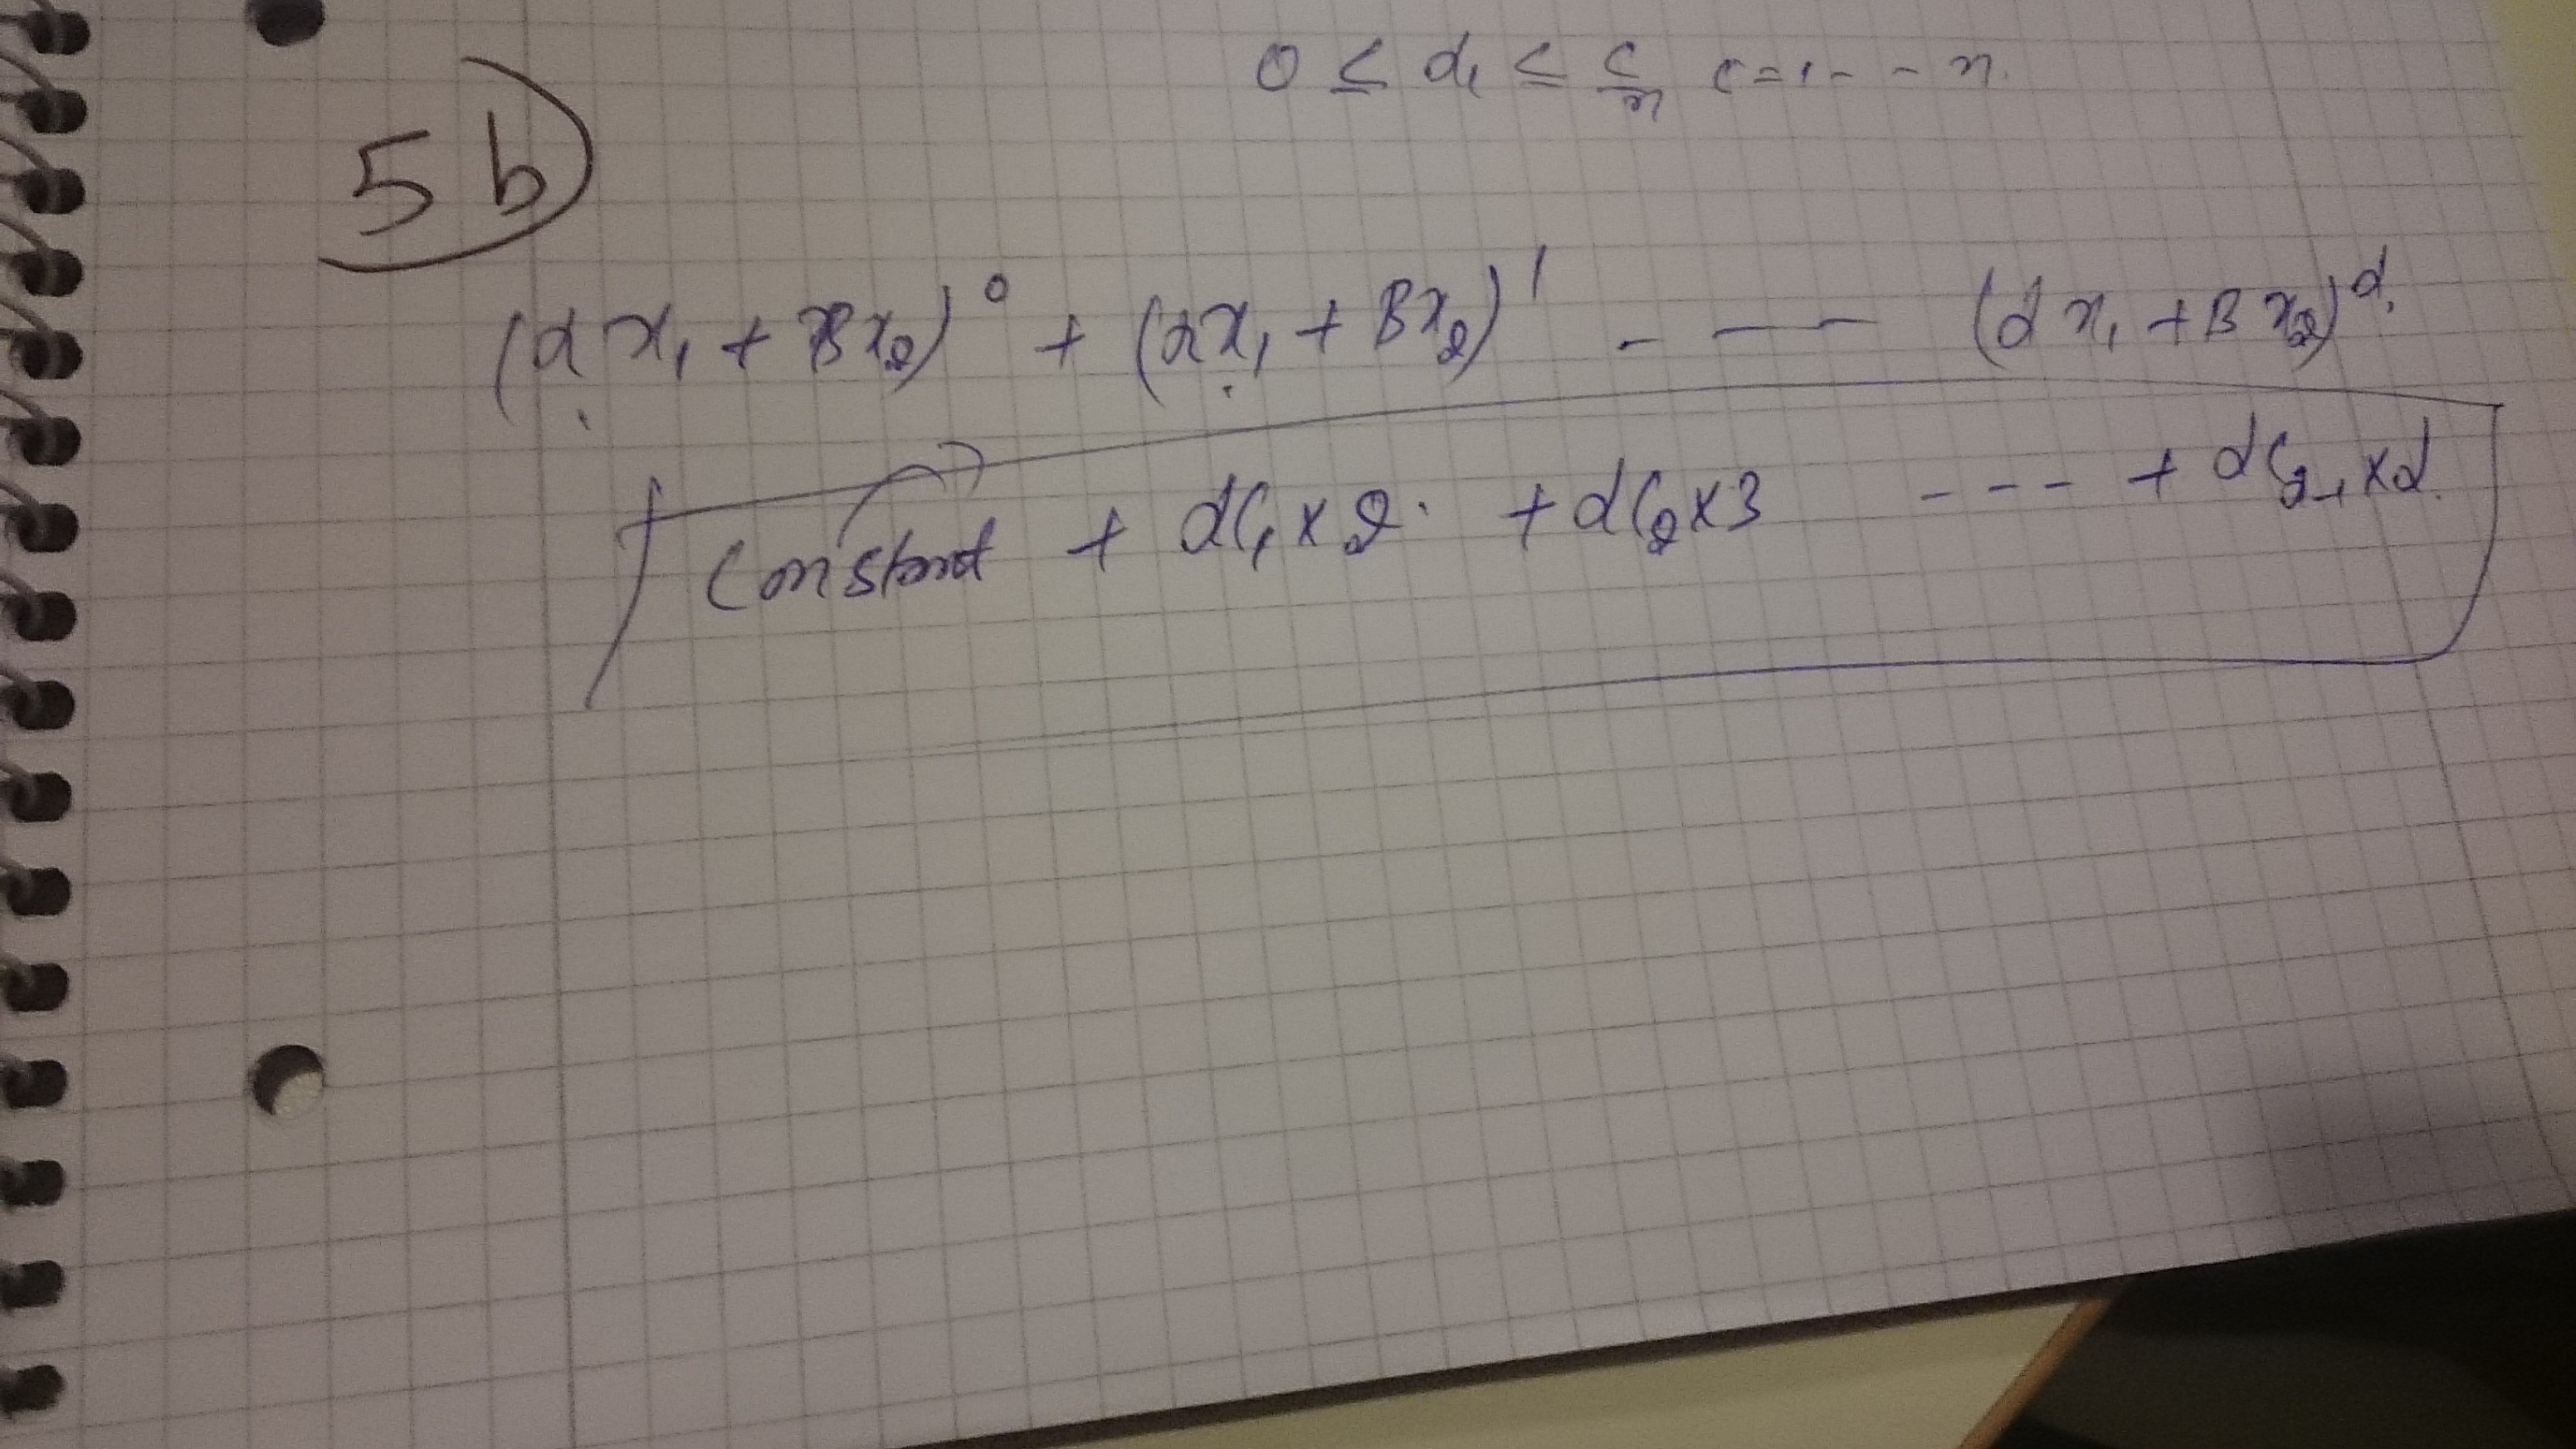 0 ≤ α₁ ≤ C/n i = 1 - - n.
5b)
(αx₁ + Bx₂)⁰ + (αx₁ + Bx₂)¹ - - - (αx₁ + Bx₂)ᵈ.
Constant + dC₁ × 2. + dC₂ × 3 - - - + dC × d.